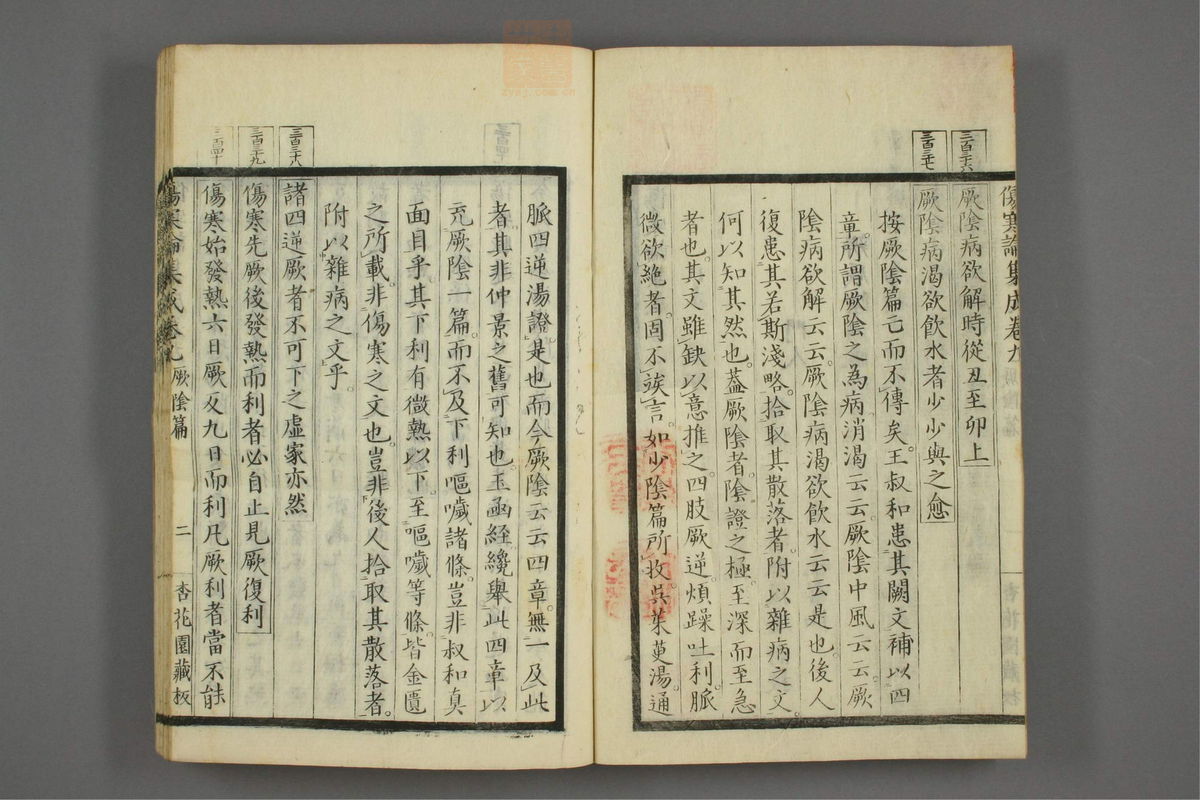 傷寒論集成卷九
三百三十六
厥陰病欲解時從丑至卯上
三百三十七
厥陰病渴欲飲水者少少與之愈
按厥陰篇亡而不傳矣王叔和患其闕文補以四
章所謂厥陰之為病消渴云云厥陰中風云云厥
陰病欲解云云厥陰病渴欲飲水云云是也後人
復患其若斯淺略拾取其散落者附以雜病之文
何以知其然也蓋厥陰者陰證之極至深而至急
者也其文雖缺以意推之四肢厥逆煩躁吐利脈
微欲絶者固不竢言如少陰篇所收吳茱萸湯通
脈四逆湯證是也而今厥陰云云四章無一及此
者其非仲景之舊可知也玉函經纔舉此四章以
充厥陰一篇而不及下利嘔噦諸條豈非叔和真
面目乎其下利有微熱以下至嘔噦等條皆金匱
之所載非傷寒之文也豈非後人拾取其散落者
附以雜病之文乎
三百三十八
諸四逆厥者不可下之虛家亦然
三百三十九
傷寒先厥後發熱而利者必自止見厥復利
三百四十
傷寒始發熱六日厥反九日而利凡厥利者當不能
傷寒論集成卷九 厥陰篇 二 杏花園藏板
zysj.com.cn